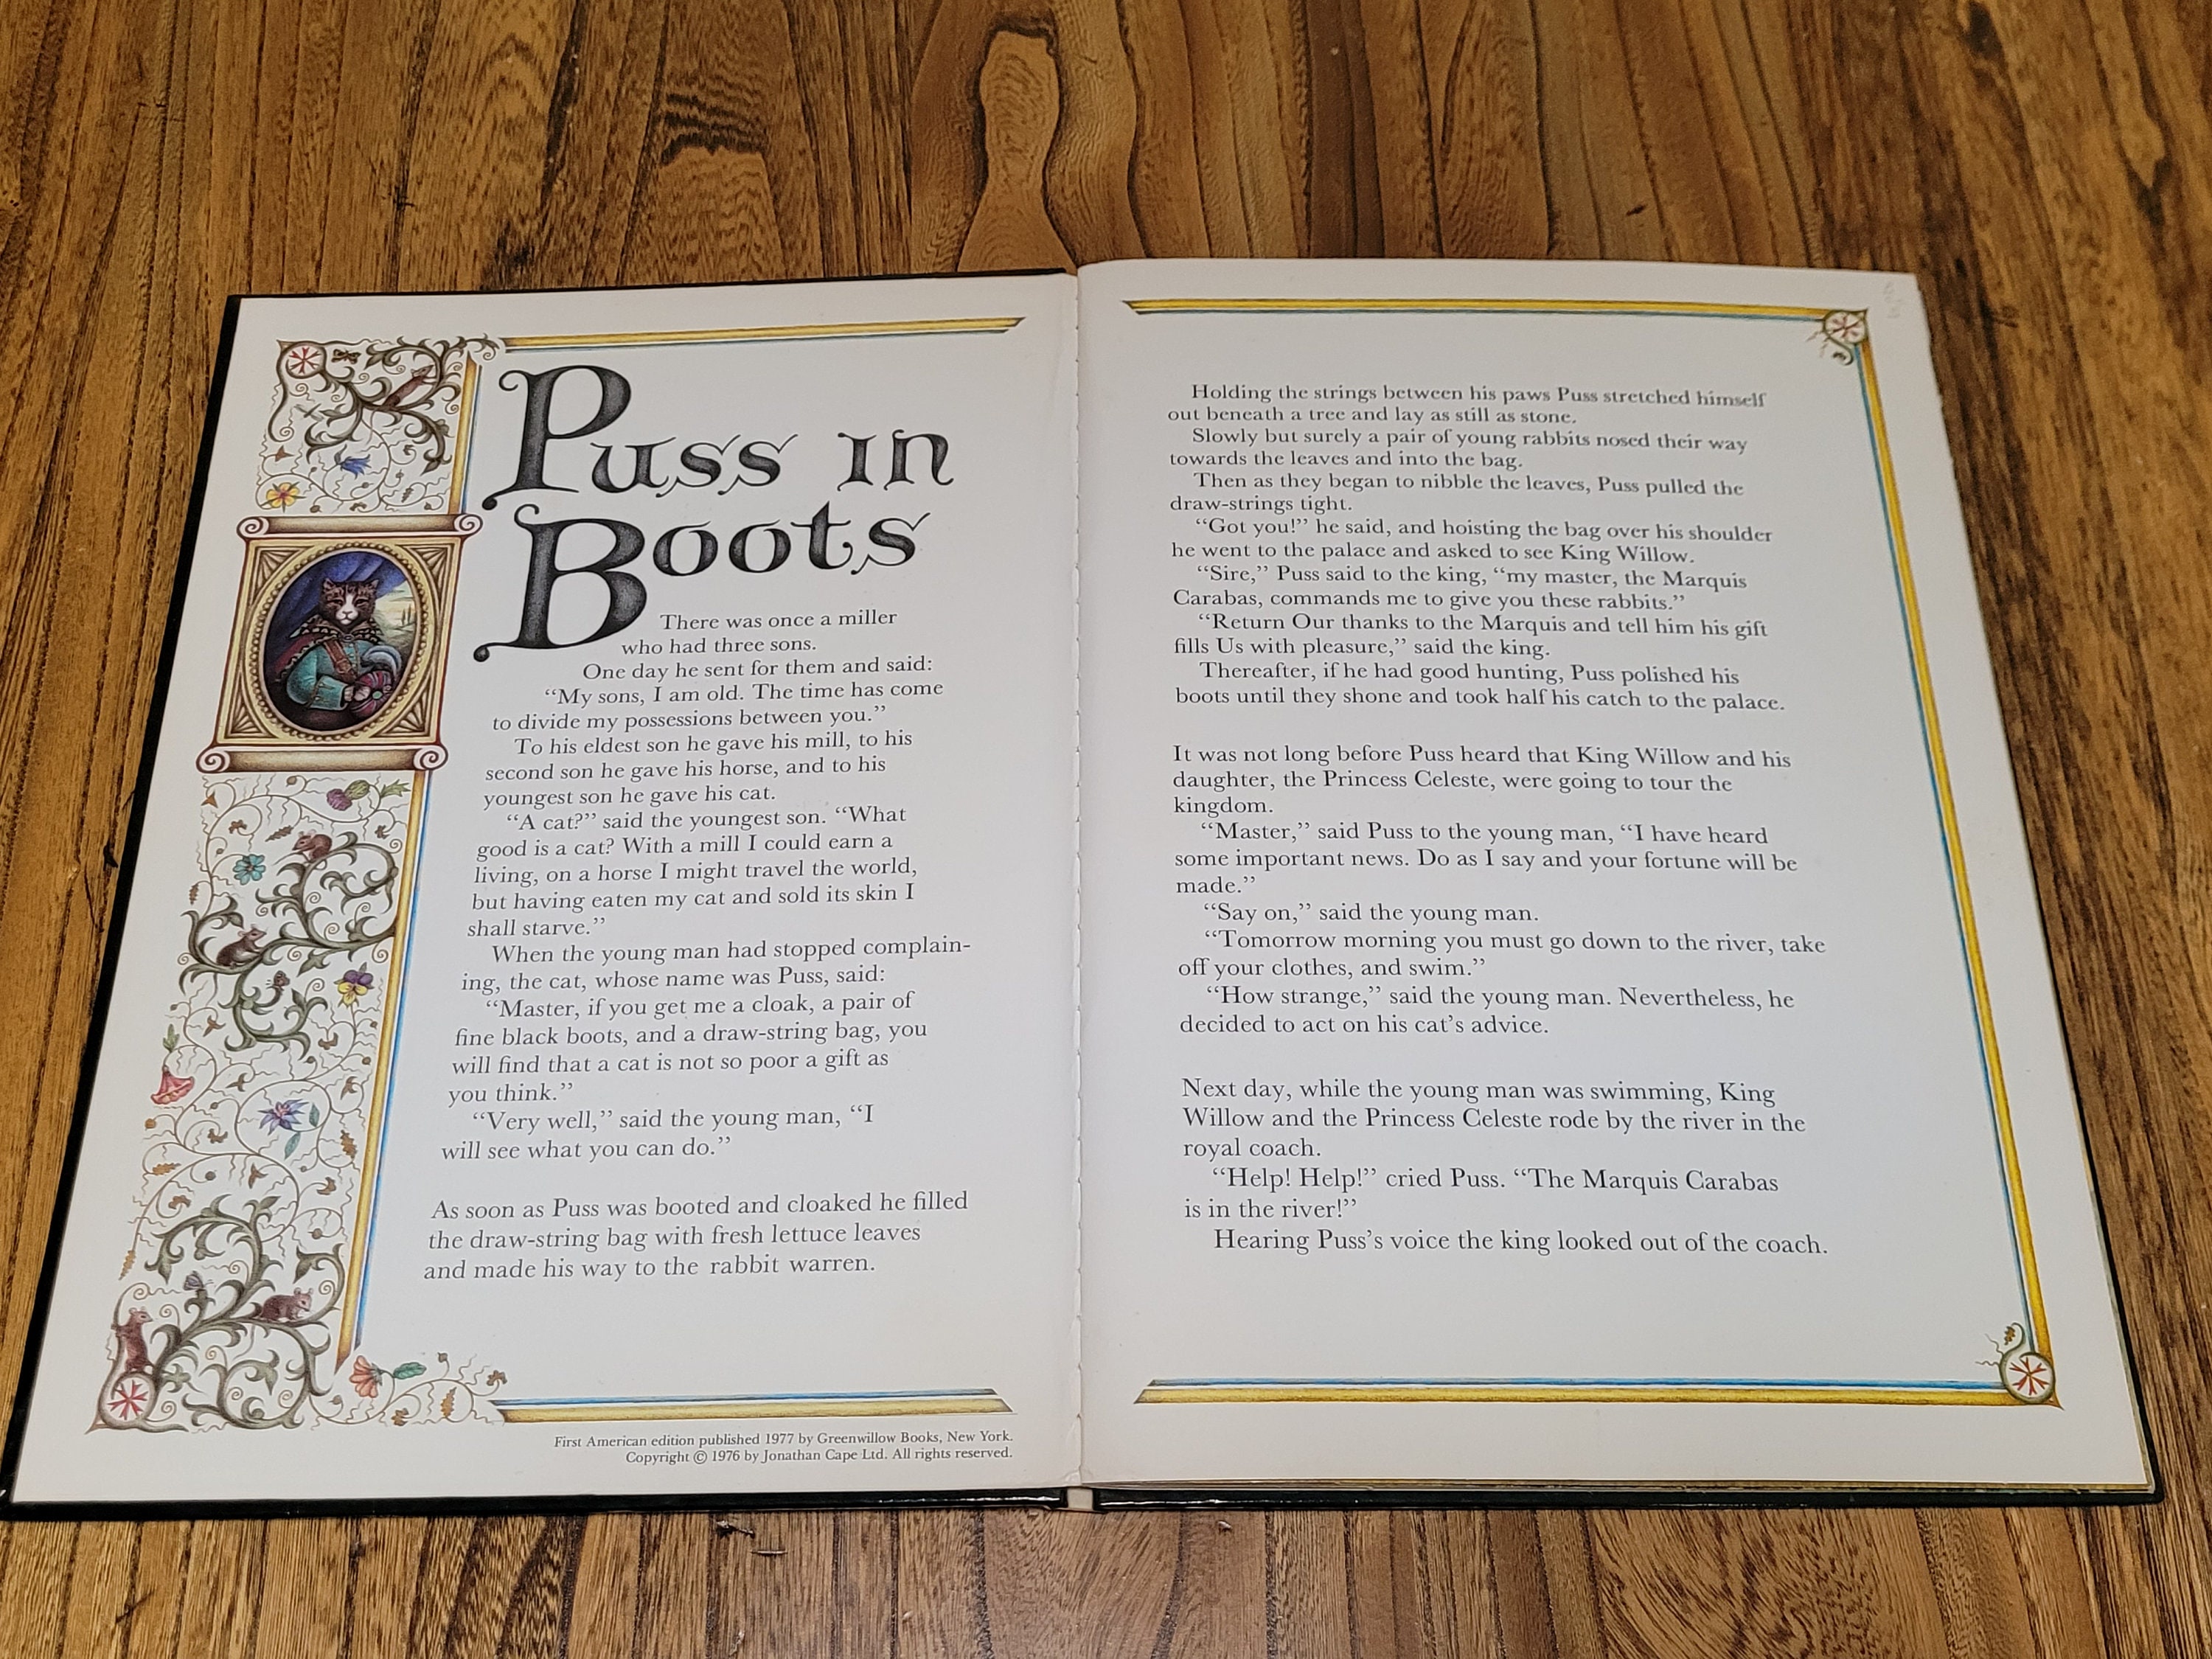 Puss in
Boots
There was once a miller
who had three sons.
One day he sent for them and said:
“My sons, I am old. The time has come
to divide my possessions between you.”
To his eldest son he gave his mill, to his
second son he gave his horse, and to his
youngest son he gave his cat.
“A cat?” said the youngest son. “What
good is a cat? With a mill I could earn a
living, on a horse I might travel the world,
but having eaten my cat and sold its skin I
shall starve.”
When the young man had stopped complain-
ing, the cat, whose name was Puss, said:
“Master, if you get me a cloak, a pair of
fine black boots, and a draw-string bag, you
will find that a cat is not so poor a gift as
you think.”
“Very well,” said the young man, “I
will see what you can do.”
As soon as Puss was booted and cloaked he filled
the draw-string bag with fresh lettuce leaves
and made his way to the rabbit warren.
First American edition published 1977 by Greenwillow Books, New York.
Copyright © 1976 by Jonathan Cape Ltd. All rights reserved.
Holding the strings between his paws Puss stretched himself
out beneath a tree and lay as still as stone.
Slowly but surely a pair of young rabbits nosed their way
towards the leaves and into the bag.
Then as they began to nibble the leaves, Puss pulled the
draw-strings tight.
“Got you!” he said, and hoisting the bag over his shoulder
he went to the palace and asked to see King Willow.
“Sire,” Puss said to the king, “my master, the Marquis
Carabas, commands me to give you these rabbits.”
“Return Our thanks to the Marquis and tell him his gift
fills Us with pleasure,” said the king.
Thereafter, if he had good hunting, Puss polished his
boots until they shone and took half his catch to the palace.
It was not long before Puss heard that King Willow and his
daughter, the Princess Celeste, were going to tour the
kingdom.
“Master,” said Puss to the young man, “I have heard
some important news. Do as I say and your fortune will be
made.”
“Say on,” said the young man.
“Tomorrow morning you must go down to the river, take
off your clothes, and swim.”
“How strange,” said the young man. Nevertheless, he
decided to act on his cat’s advice.
Next day, while the young man was swimming, King
Willow and the Princess Celeste rode by the river in the
royal coach.
“Help! Help!” cried Puss. “The Marquis Carabas
is in the river!”
Hearing Puss’s voice the king looked out of the coach.